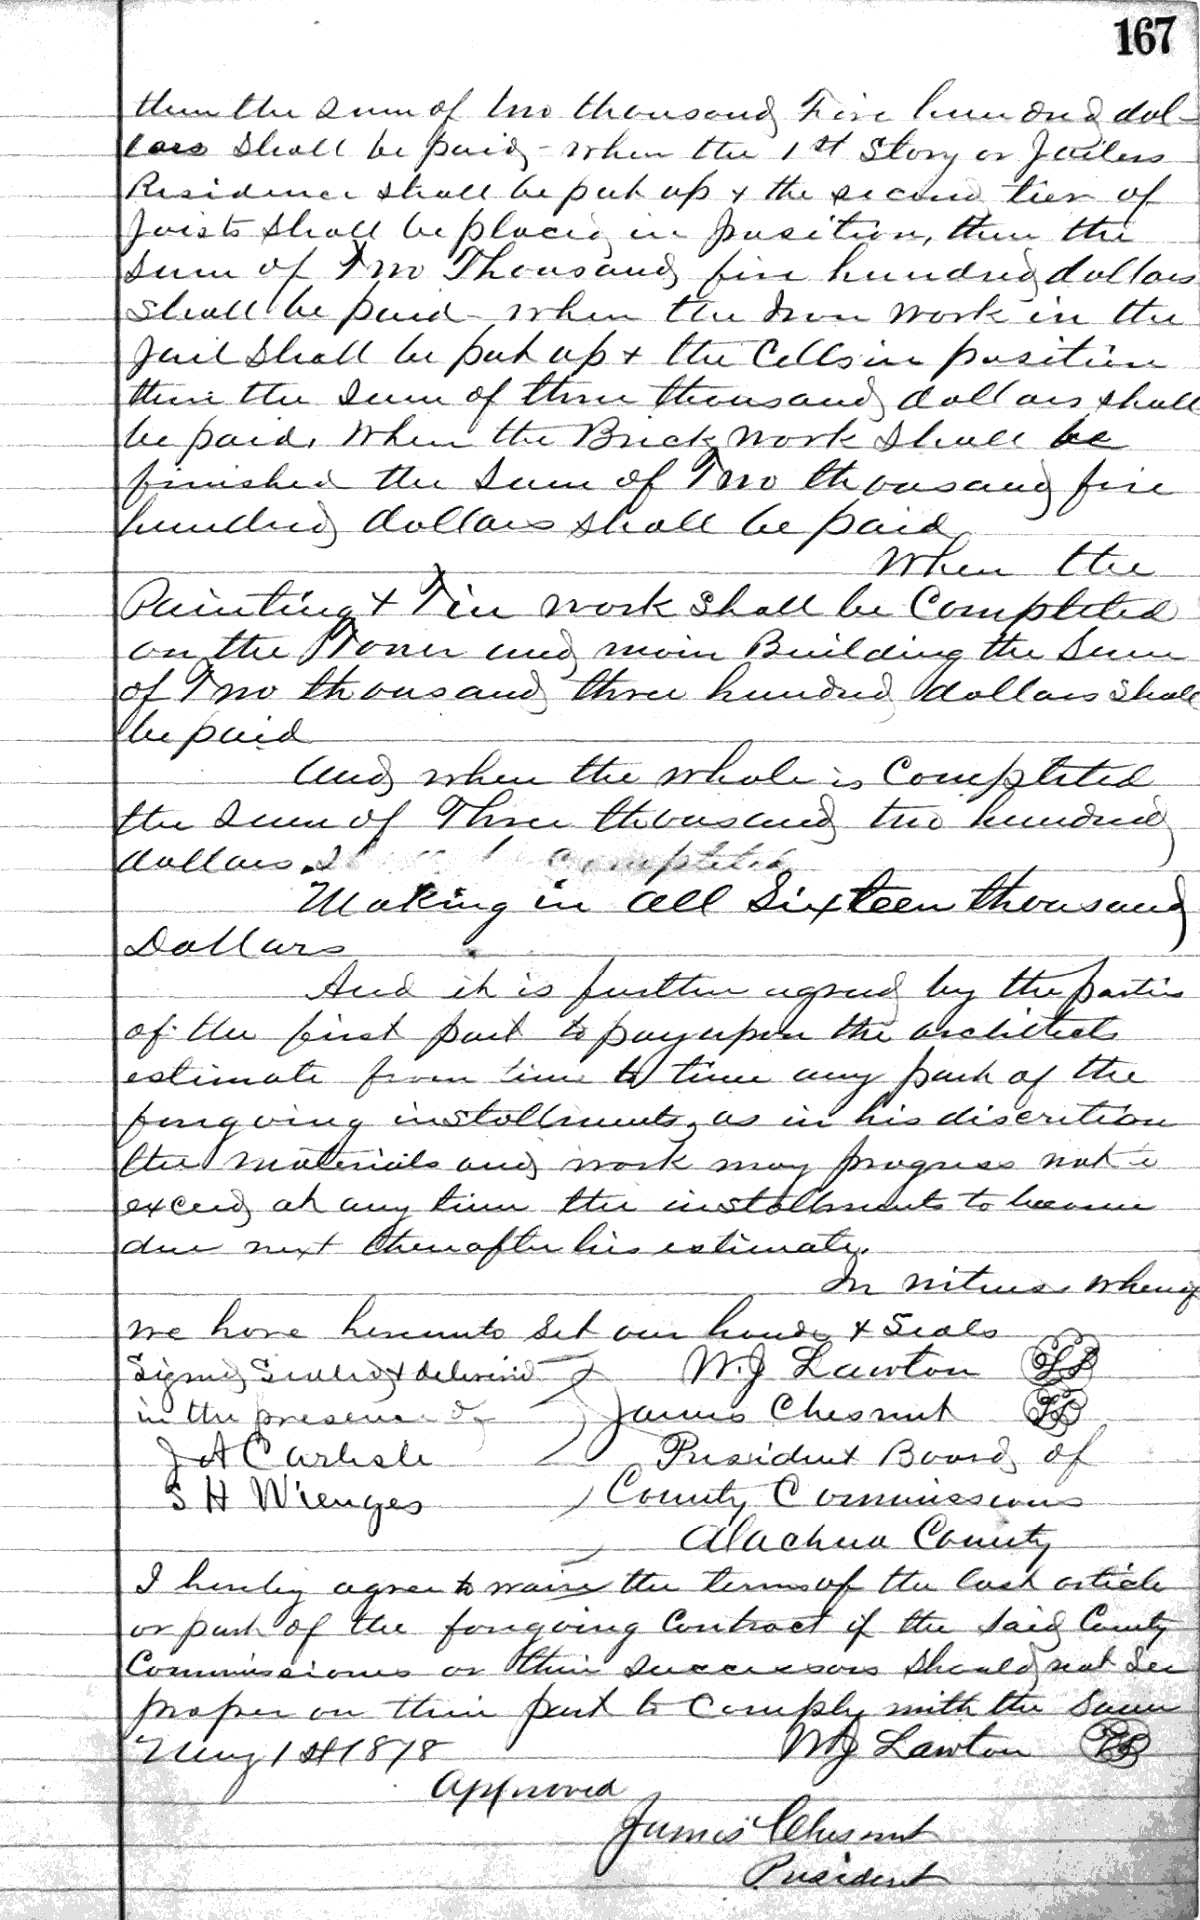 167
then the sum of two thousand Five hundred dol-
lars shall be paid - when the 1st Story or Jailers
Residence shall be put up & the second tier of
Joists shall be placed in position, then the
Sum of Two Thousand five hundred dollars
shall be paid - when the Iron work in the
Jail shall be put up & the Cells in position
then the Sum of three thousand dollars shall
be paid. When the Brick work shall be
finished the Sum of Two thousand five
hundred dollars shall be paid
When the
Painting & Tin work shall be Completed
on the Tower and main Building the Sum
of Two thousand three hundred dollars shall
be paid
And when the whole is Completed
the Sum of Three thousand two hundred
dollars. completed
Making in all Sixteen thousand
Dollars
And it is further agreed by the parties
of the first part to pay upon the architects
estimate from time to time any part of the
foregoing installments, as in his discretion
the materials and work may progress not to
exceed at any time the installments to become
due next thereafter his estimate.
In witness whereof
we have hereunto Set our hands & Seals
Signed Sealed & delivered W.J Lawton LS
in the presence of James Chesnut LS
J A Carlisle President Board of
S H Wienges County Commissioners
Alachua County
I hereby agree to waive the terms of the last article
or part of the foregoing Contract if the said County
Commissioners or their successors should not See
proper on their part to Comply with the Same
May 1st 1878 WJ Lawton LS
Approved
James Chesnut
President